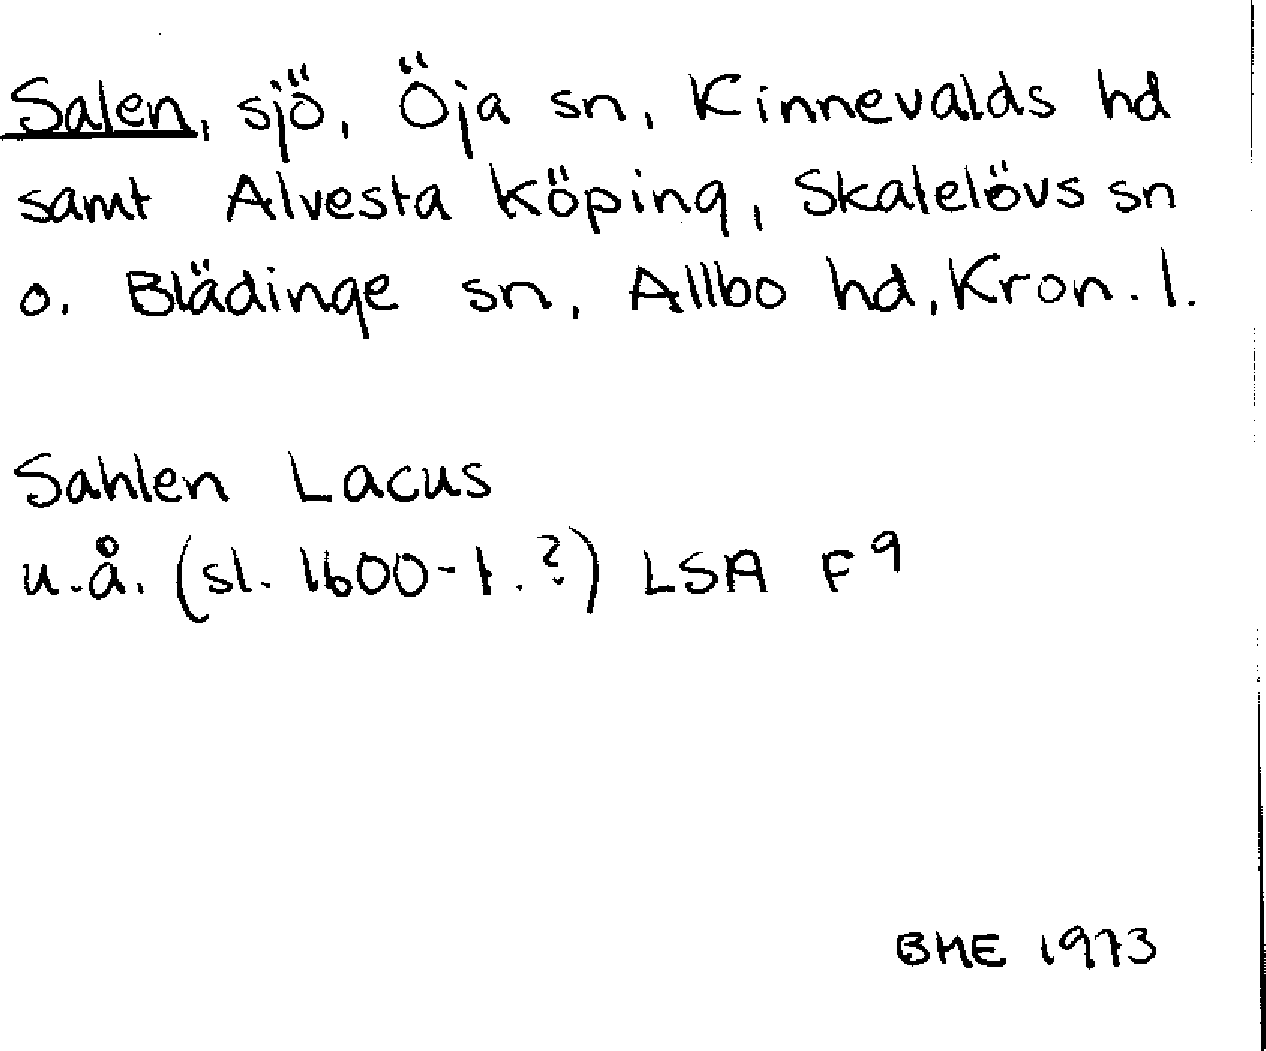 Salen, sjö, Öja sn, Kinnevalds hd
samt Alvesta köping, Skatelövs sn
o. Blädinge sn, Allbo hd, Kron. l.
Sahlen Lacus
u.å. (sl. 1600-t.?) LSA F9
BME 1973